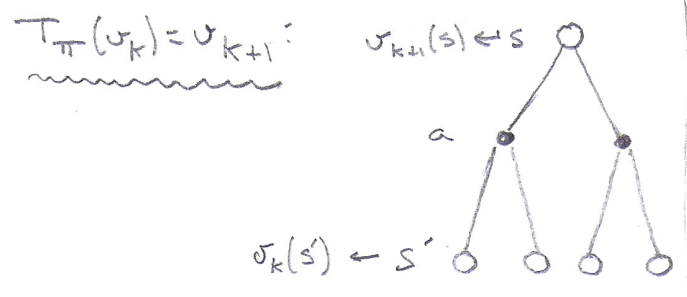 T_π(v_k) = v_{k+1}:
v_{k+1}(s) ← s
a
v_k(s') ← s'